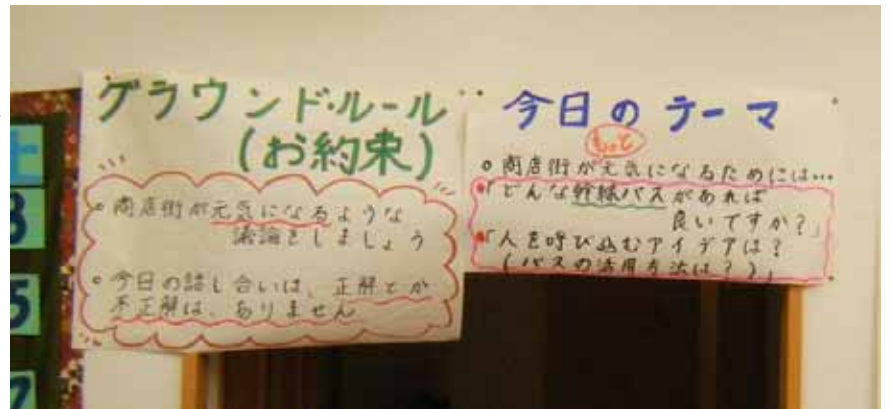 グラウンド・ルール
(お約束)
○商店街が元気になるような
議論をしましょう
○今日の話し合いは、正解とか
不正解は、ありません
今日のテーマ
もっと
○商店街が元気になるためには…
・「どんな幹線バスがあれば
良いですか?」
・「人を呼び込むアイデアは?
(バスの活用方法は?)」
土
8
5